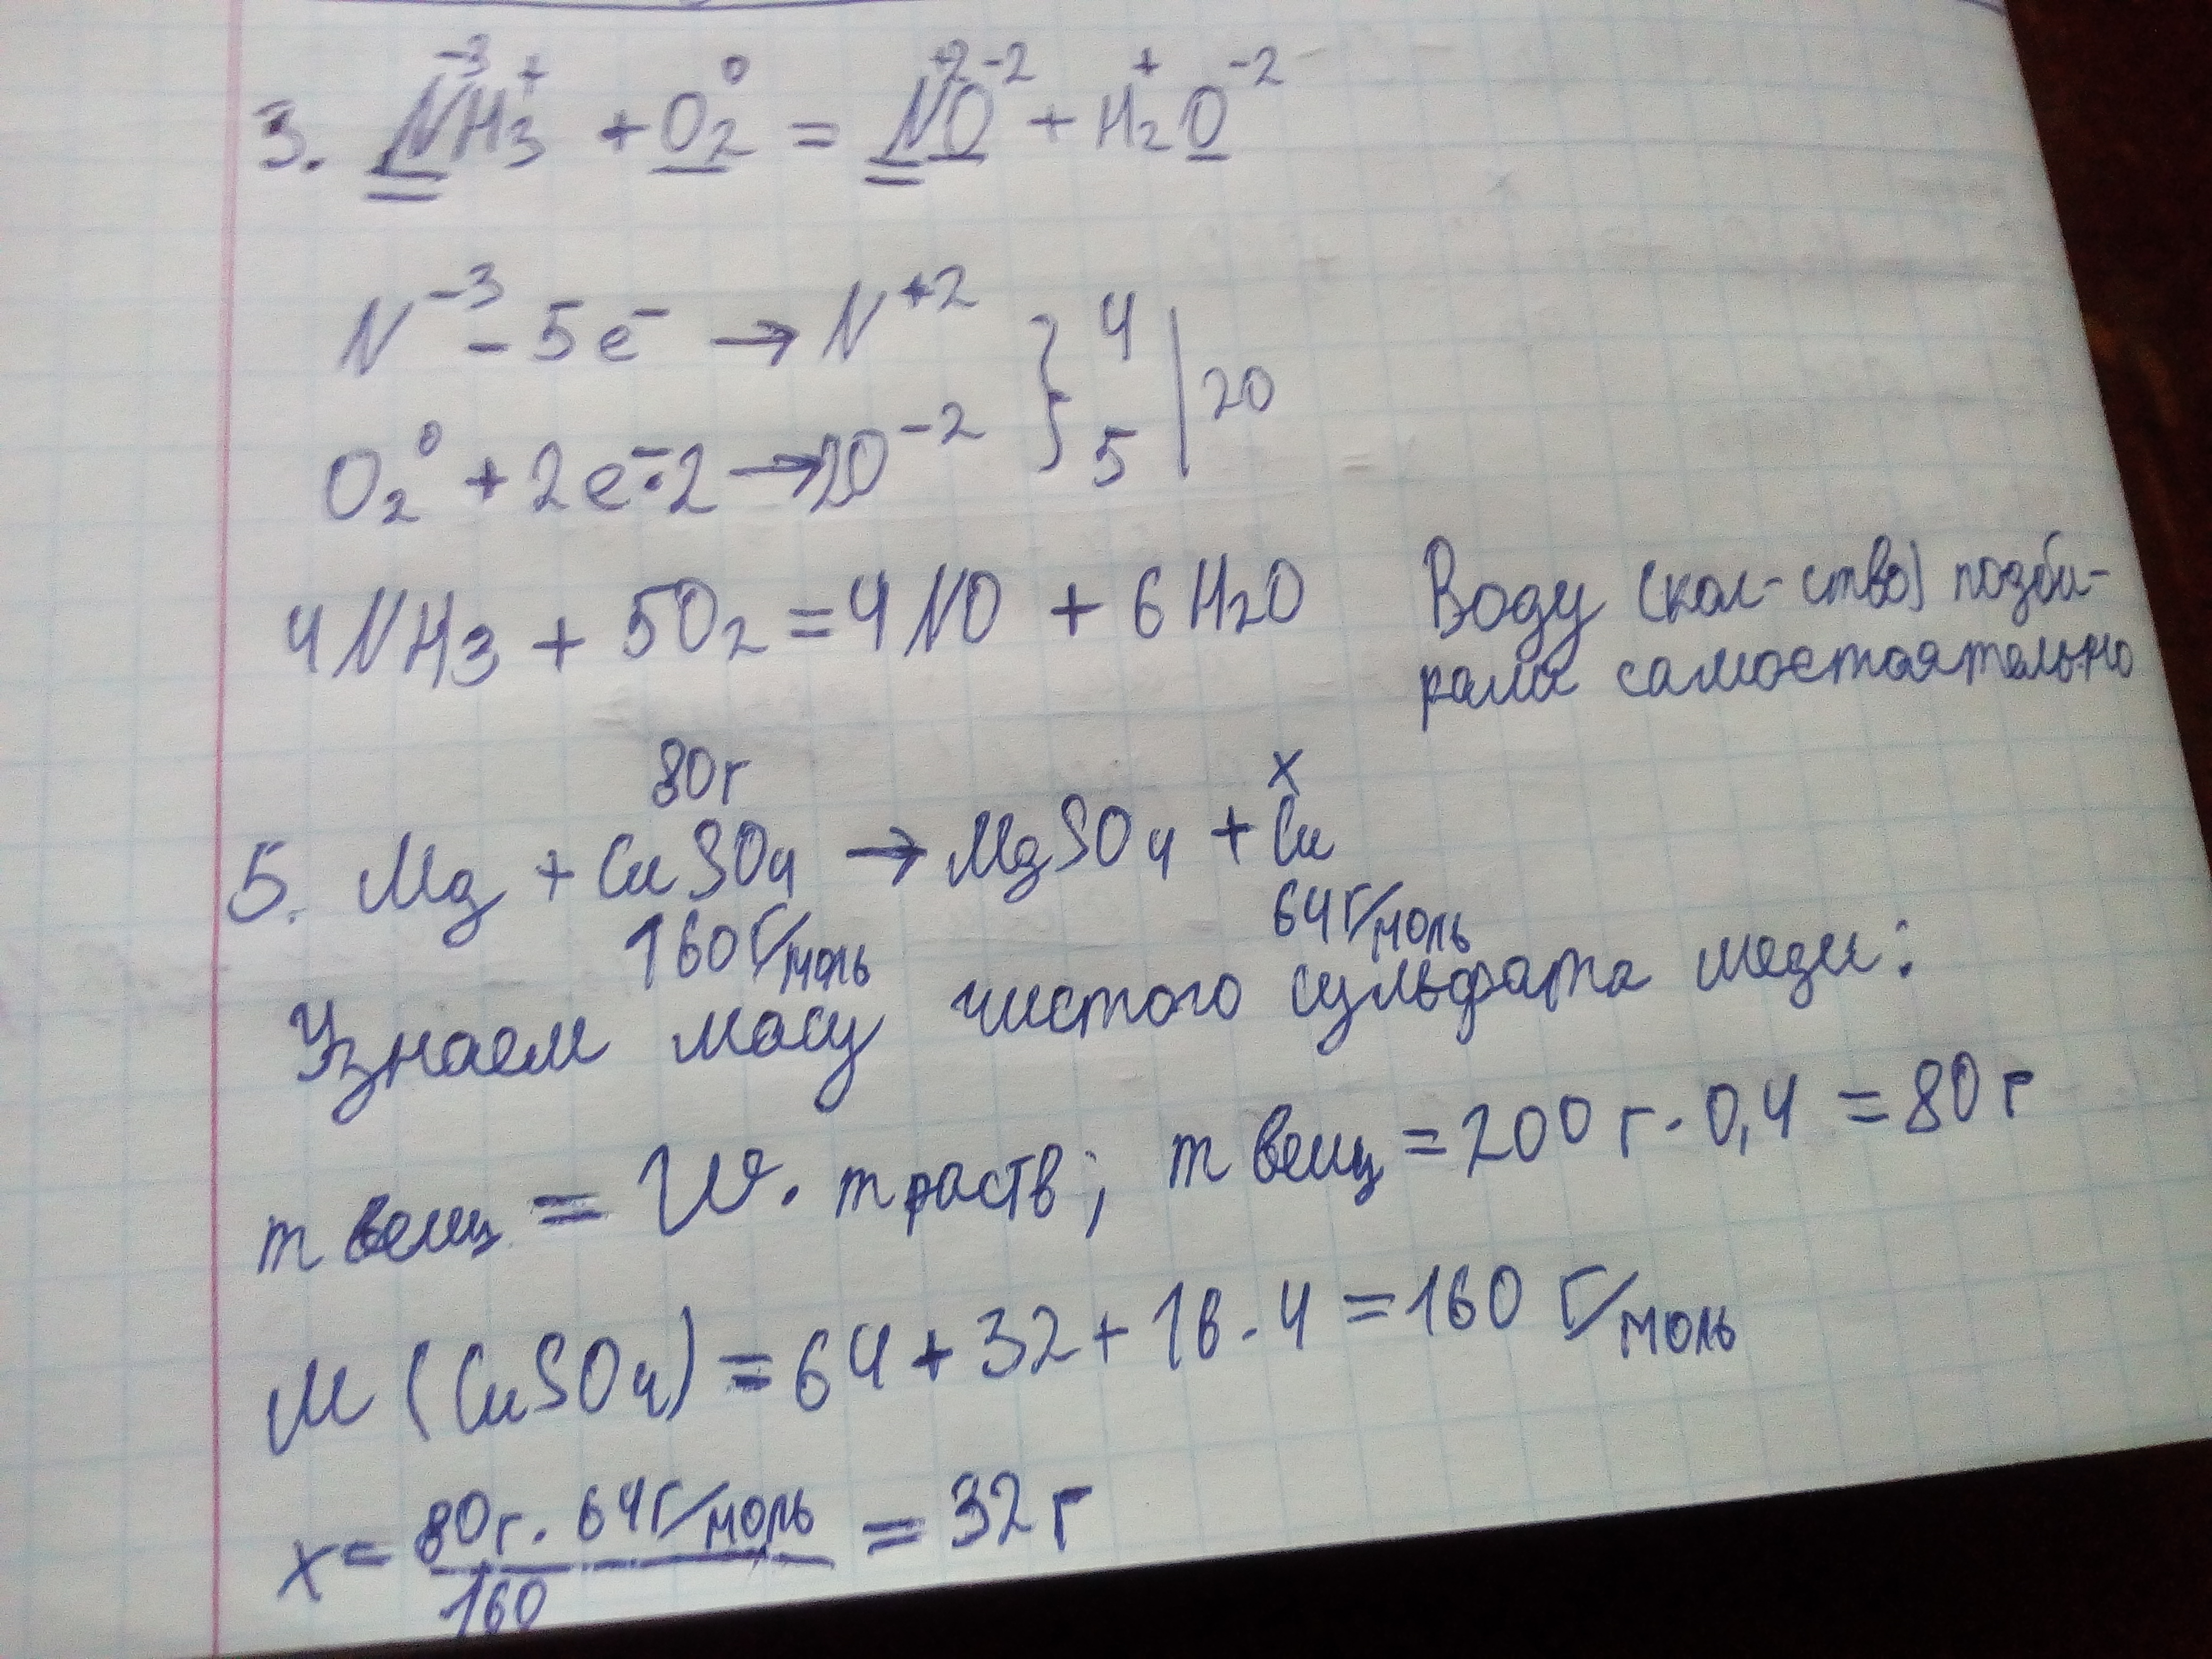 -3 + 0 +2 -2 + -2
3. NH₃ + O₂ = NO + H₂O
N⁻³ - 5e⁻ → N⁺² } 4 | 20
O₂⁰ + 2e⁻·2 → 2O⁻² } 5 |
4NH₃ + 5O₂ = 4NO + 6H₂O Воду (кол-ство) подби-
рала самостоятельно
80г x
5. Mg + CuSO₄ → MgSO₄ + Cu
160 г/моль 64 г/моль
Узнаем масу чистого сульфата меди:
m вещ = W · m раств; m вещ = 200 г · 0,4 = 80 г
M (CuSO₄) = 64 + 32 + 16 · 4 = 160 г/моль
x = 80г · 64 г/моль / 160 = 32 г